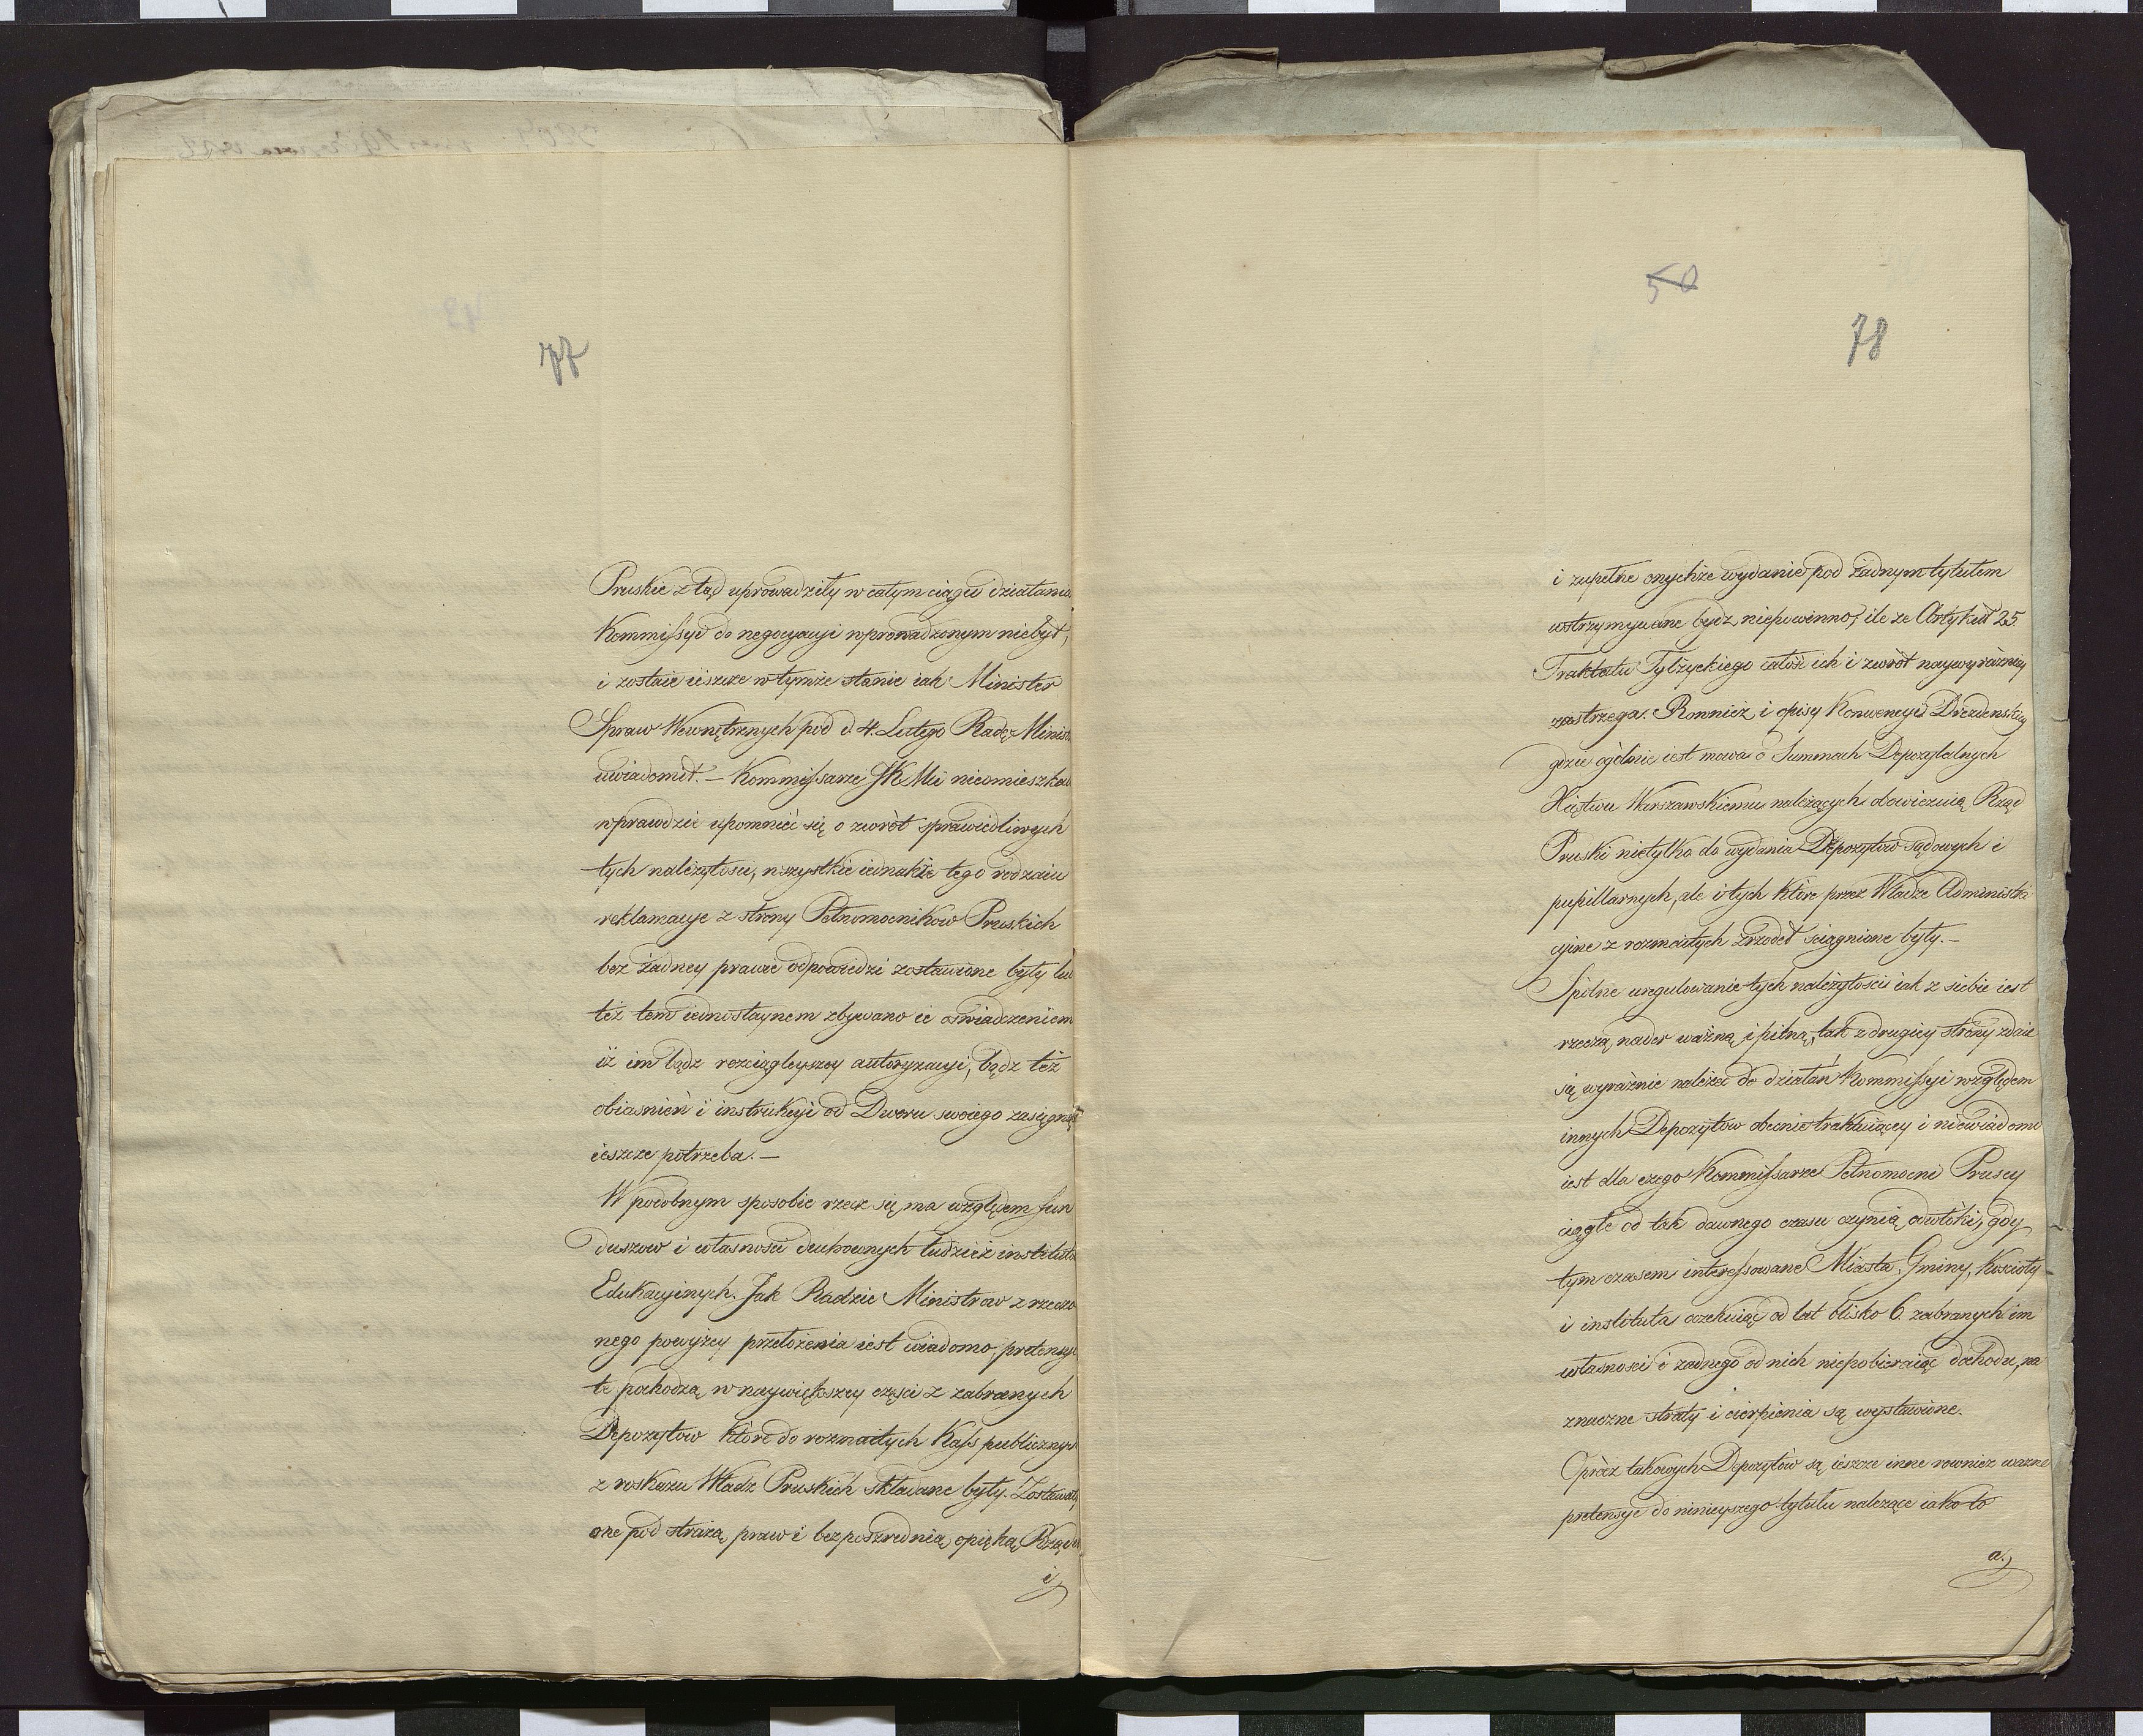 77
Pruskie z tąd uprowadziły w całym ciągu działania
Kommissyi do negocyacyi wprowadzonym niebył,
i zostaie ieszcze w tymże stanie iak Minister
Spraw Wewnętrznych pod d. 4. Lutego Radę Minist
uwiadomił. – Kommissarze JKMci nieomieszkali
wprawdzie upomnieć się o zwrót sprawiedliwych
tych należytości, wszystkie iednakże tego rodzaiu
reklamacye z strony Pełnomocników Pruskich
bez żadney prawie odpowiedzi zostawione były lub
też tem iednostaynem zbywano ie oświadczeniem
iż im bądz rozciągleyszey autoryzacyi, bądz też
obiasnień i instrukcyi od Dworu swoiego zasięgnąć
ieszcze potrzeba. –
W podobnym sposobie rzecz się ma względem fun
duszow i własnosci duchownych tudzież instytutow
Edukacyinych. Jak Radzie Ministrow z rzeczo
nego powyżey przełożenia iest wiadomo, pretensye
te pochodzą w naywiększey części z zabranych
Depozytow które do rozmaitych Kass publicznych
z roskazu Władz Pruskich składane były. Zostawały
one pod strażą praw i bezpośrednią opieką Rządu
i
50
78
i zupełne onychże wydanie pod żadnym tytułem
wstrzymywane bydz niepowinno, ile ze Artykuł 25
Traktatu Tylżyckiego całość ich i zwrót naywyrazniey
zastrzega. Rownież i opisy Konwencyi Drezdenskiey
gdzie ogólnie iest mowa o Summach Depozytalnych
Xięstwu Warszawskiemu należących obowiezuią Rząd
Pruski nietylko do wydania Depozytow sądowych i
pupillarnych, ale i tych które przez Władze Administra
cyine z rozmaitych źrzodeł sciągnione były. –
Spilne uregulowanie tych należytości iak z siebie iest
rzeczą nader ważną i pilną, tak z drugiey strony zdaie
się wyraznie należeć do działań Kommissyi względem
innych Depozytow obecnie traktuiącey i niewiadomo
iest dla czego Kommissarze Pełnomocni Pruscy
ciągłe od tak dawnego czasu czynią odwłoki, gdy
tym czasem interessowane Miasta, Gminy, Kościoły
i instituta oczekuiąc od lat blisko 6. zabranych im
własności i żadnego od nich niepobieraiąc dochodu, na
znaczne straty i cierpienia są wystawione.
Oprócz takowych Depozytów są ieszcze inne rownież ważne
pretensye do ninieyszego tytułu należące iako to
a.